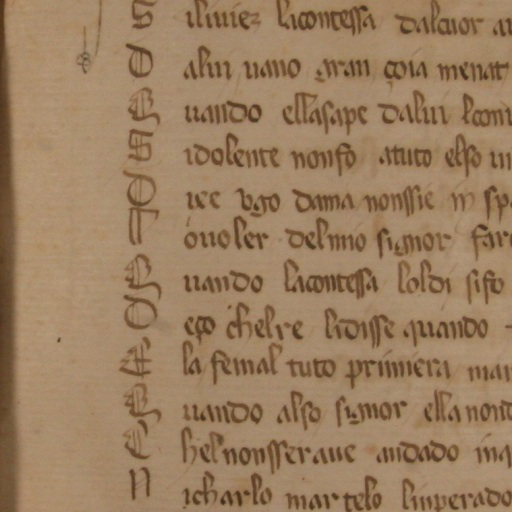 S iliuiez lacontessa dalcuor
D alui uano gran çoia menat
Q uando ellasape dalui lcon
S idolente nonfo atuto elso
D ise vgo dama nonssie in sp
I ouoler delmio signor far
Q uando lacontessa loldi sifo
D eço chelre lidisse quando
E la femal tuto primiera man
Q uando also signor ella non
C hel nonsseraue andado
N icharlo martelo linperado